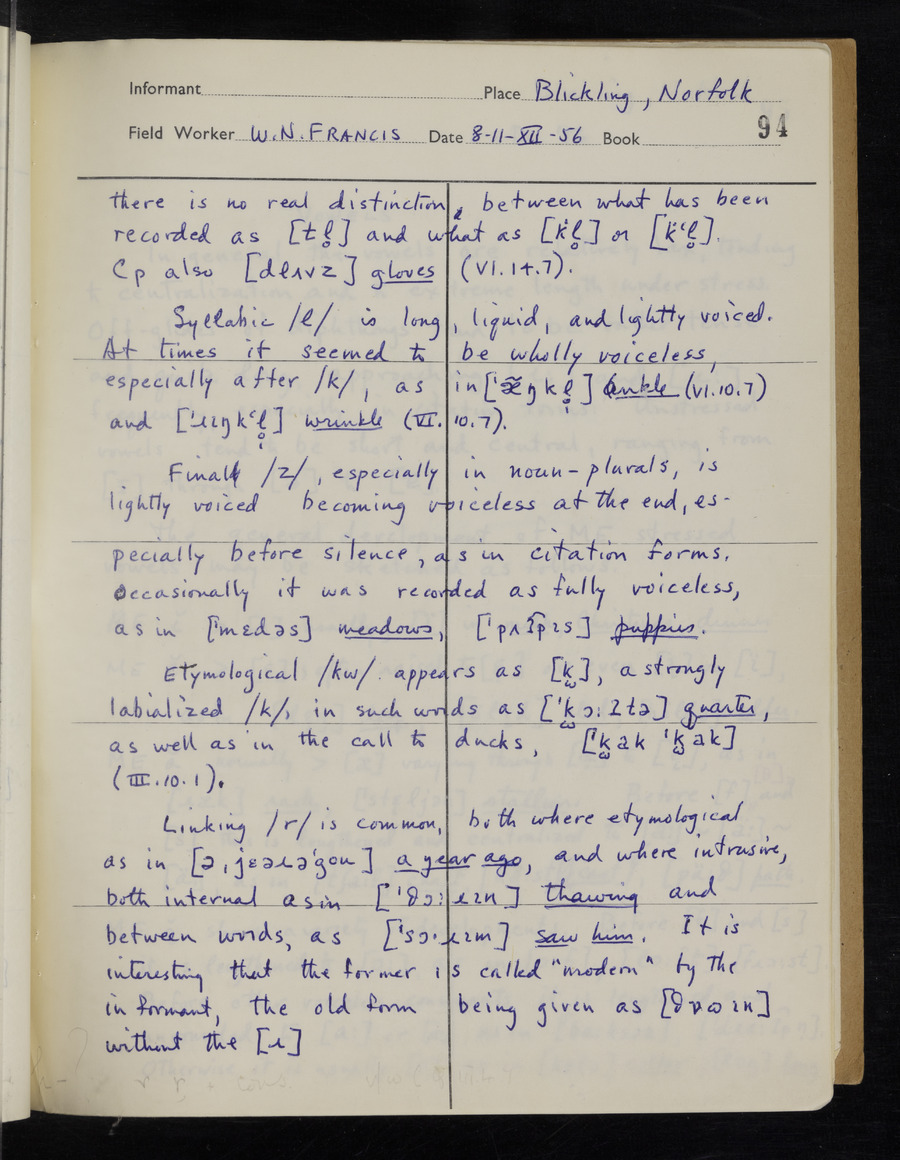 Informant Place Blickling, Norfolk
Field Worker W.N. FRANCIS Date 8-11-XII-56 Book 94
there is no real distinction, between what has been
recorded as [tl̥] and what as [k̇l̥] or [k̇ʻl̥].
Cp also [dlʌvz] gloves (VI.14.7).
Syllabic /l/ is long, liquid, and lightly voiced.
At times it seemed to be wholly voiceless,
especially after /k/, as in ['æ̃ŋkl̥] ankle (VI.10.7)
and ['ɹɪŋkʻl̥] wrinkle (VI.10.7).
Final /z/, especially in noun-plurals, is
lightly voiced becoming voiceless at the end, es-
pecially before silence, as in citation forms.
Occasionally it was recorded as fully voiceless,
as in ['mɛdəs] meadows, ['pʌʔ͡pɪs] puppies.
Etymological /kw/ appears as [k̫], a strongly
labialized /k/, in such words as ['k̫ɔ:ʔtə] quarter,
as well as in the call to ducks, ['k̫ak 'k̫ak]
(III.10.1).
Linking /r/ is common, both where etymological
as in [əˌjɛəɹəgou] a year ago, and where intrusive,
both internal as in ['θɔ:ɹɪn] thawing and
between words, as ['sɔ·ɹɪm] saw him. It is
interesting that the former is called "modern" by the
informant, the old form being given as [θɒωɪn]
without the [ɹ]